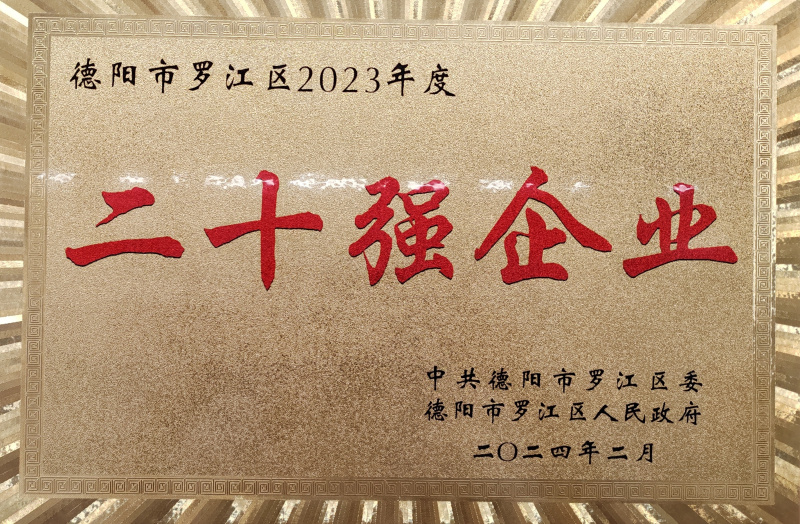 德阳市罗江区2023年度
二十强企业
中共德阳市罗江区委
德阳市罗江区人民政府
二〇二四年二月